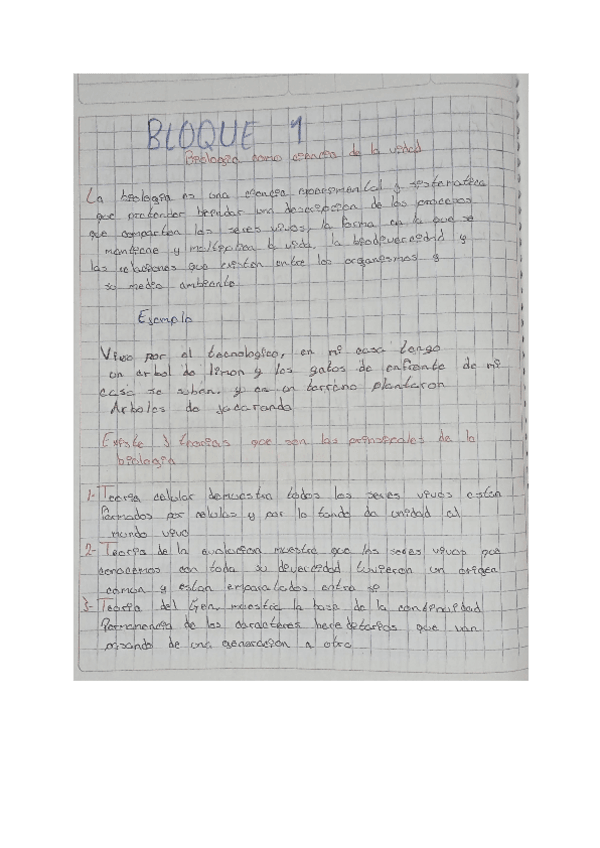 BLOQUE 1
Biologia como ciencia de la vida
La biologia es una ciencia experimental y sistematica
que pretender brindar una descripcion de los procesos
que comparten los seres vivos, la forma en la que se
mantiene y multiplica la vida, la biodeverciedad y
las relaciones que existen entre los organismos y
su medio ambiente
Ejemplo
Vivo por el tecnologico, en mi casa tengo
un arbol de limon y los gatos de enfrente de mi
casa se suben. y en un terreno plantaron
Arboles de jacaranda
Existe 3 theorias que son las principales de la
biologia
1- Teoria celular demuestra todos los seres vivos estan
formados por celulas y por lo tando da unidad al
mundo vivo
2- Teoria de la evolucion muestra que los seres vivos que
conocemos con toda su deverciedad tuvieron un origen
comun y estan emparatados entre se
3- Teoria del Gen muestra la base de la contenuedad
Permanencia de los caracteres heredetarios que van
pasando de una generacion a otra